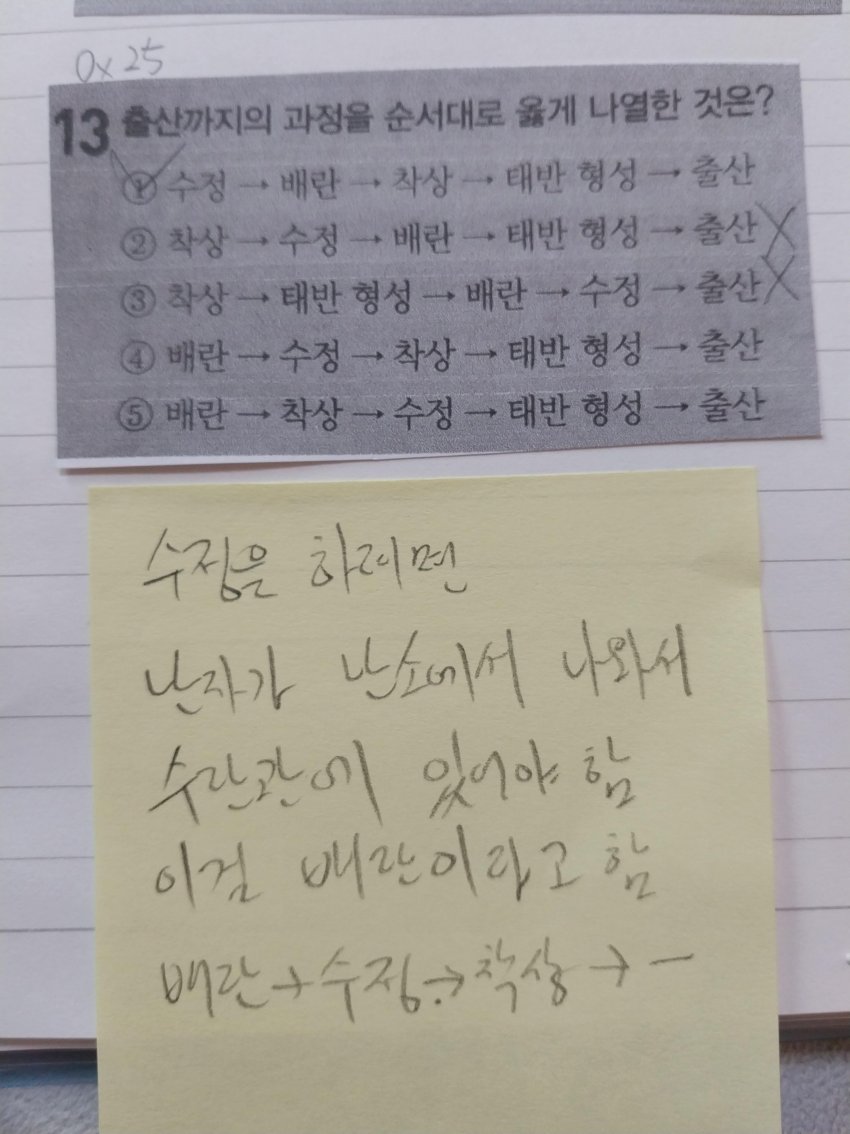 0x25
13 출산까지의 과정을 순서대로 옳게 나열한 것은?
① 수정 → 배란 → 착상 → 태반 형성 → 출산
② 착상 → 수정 → 배란 → 태반 형성 → 출산 X
③ 착상 → 태반 형성 → 배란 → 수정 → 출산 X
④ 배란 → 수정 → 착상 → 태반 형성 → 출산
⑤ 배란 → 착상 → 수정 → 태반 형성 → 출산
수정은 하려면
난자가 난소에서 나와서
수란관에 있어야 함
이걸 배란이라고 함
배란→수정→착상→ㅡ